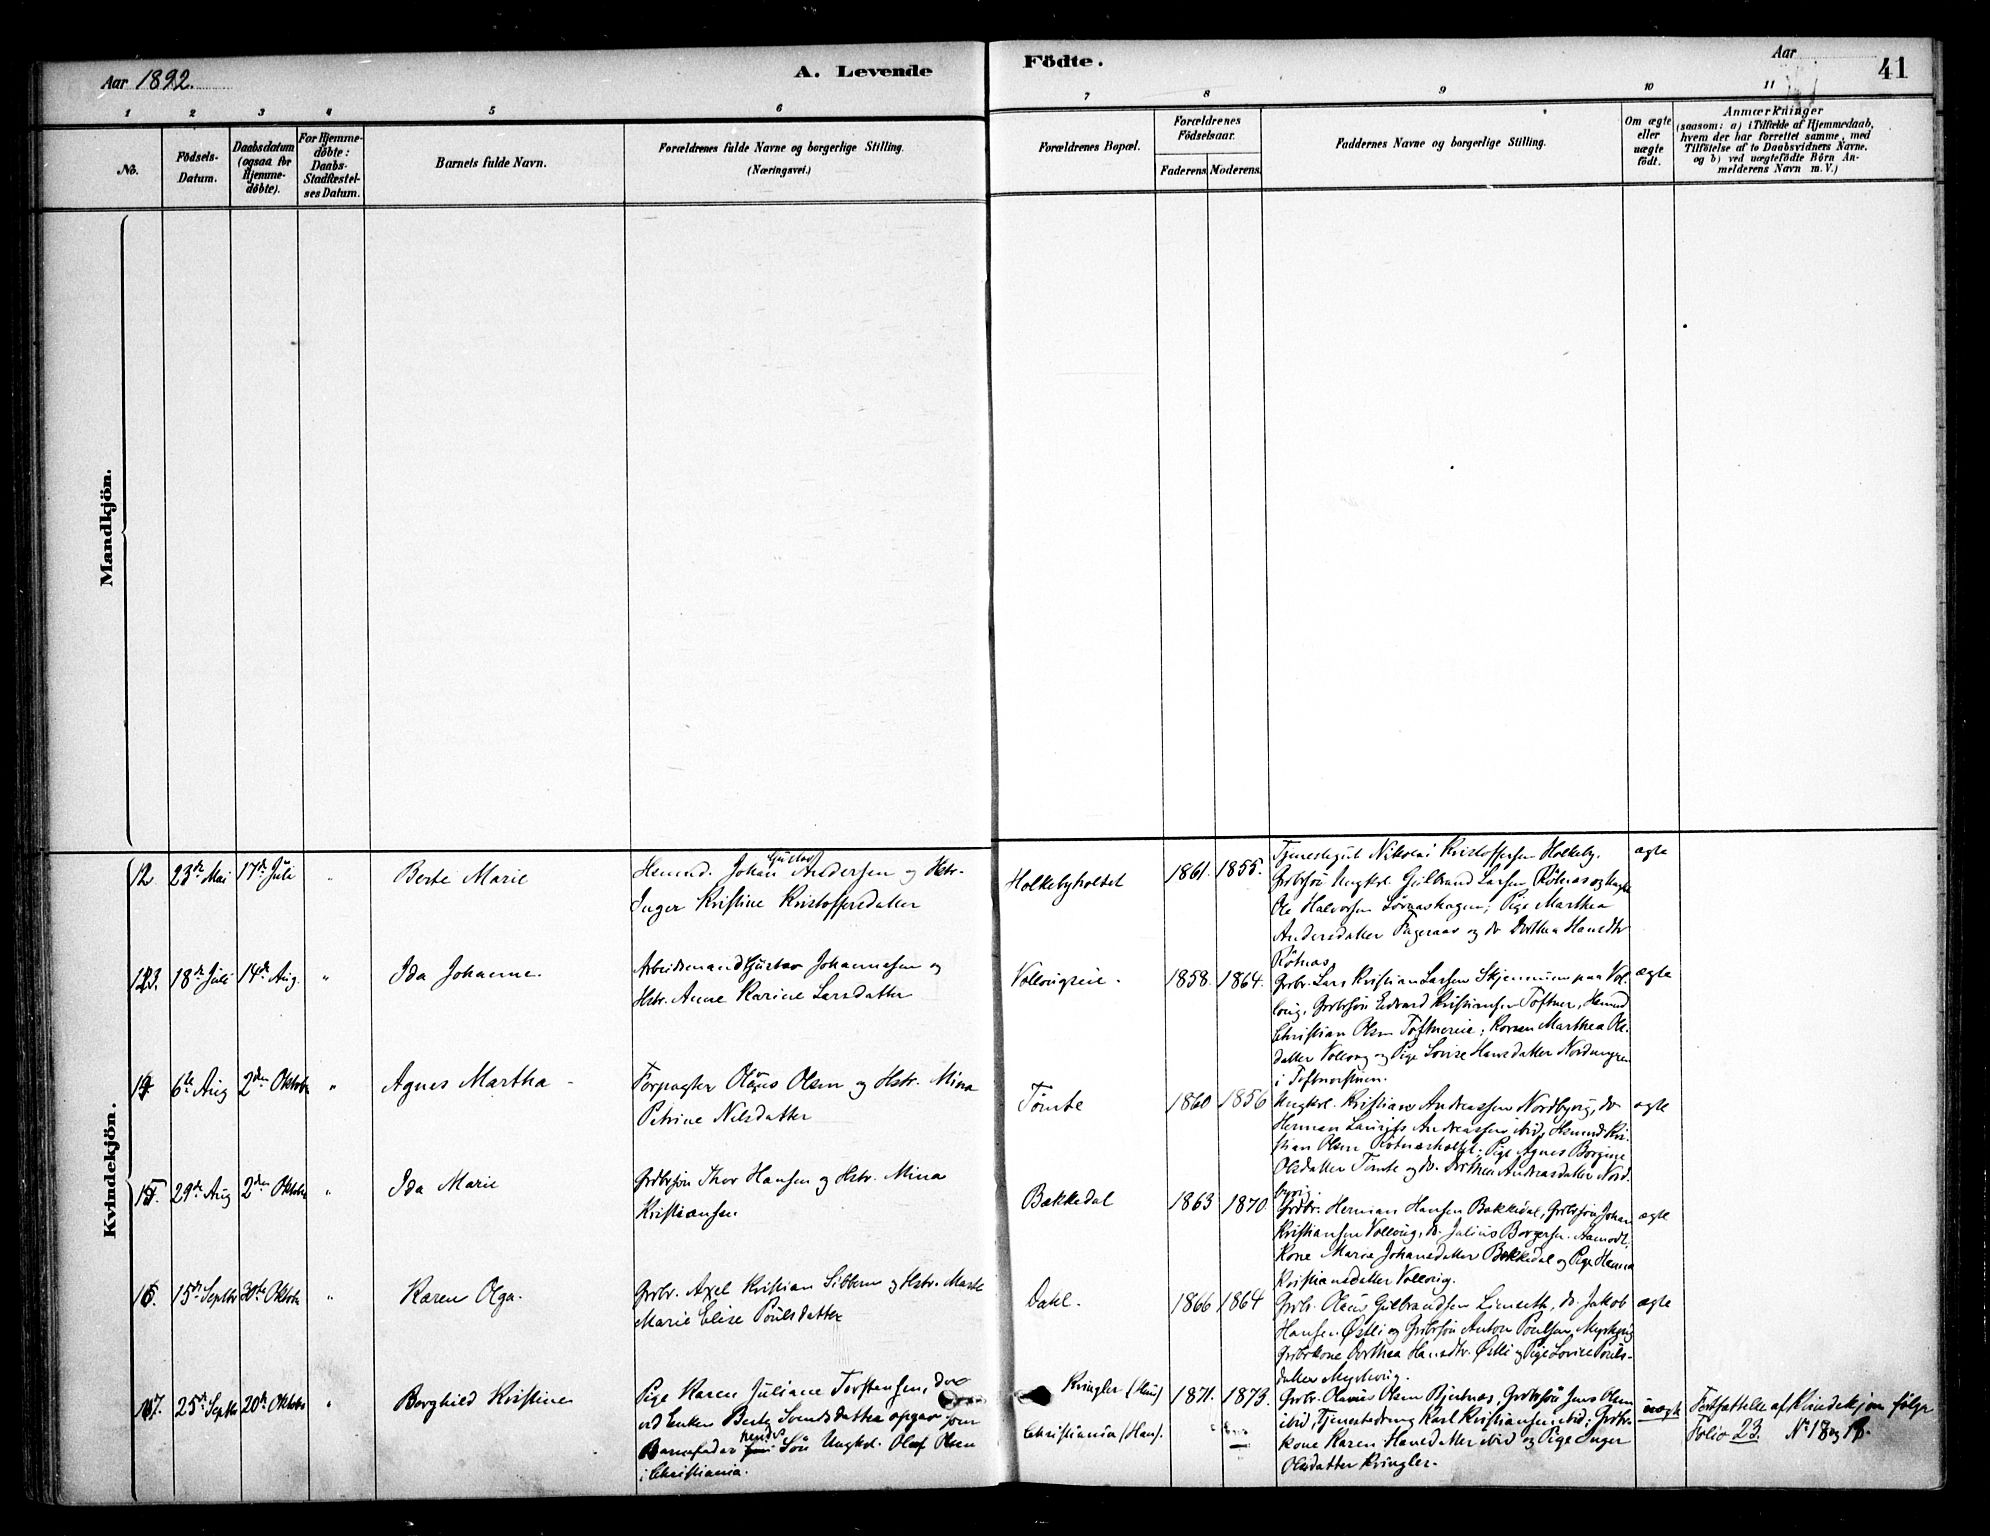 Aar 1892.
A. Levende
Födte.
Aar
41
1 2 3 4 5 6 7 8 9 10 11
No.
Födsels-Datum.
Daabsdatum (ogsaa for Hjemme-döbte).
For Hjemme-döbte: Daabs-Stadfæstel-ses Datum.
Barnets fulde Navn.
Forældrenes fulde Navne og borgerlige Stilling.
(Næringsvei.)
Forældrenes Bopæl.
Forældrenes Födselsaar.
Faderens. Moderens.
Faddernes Navne og borgerlige Stilling.
Om ægte eller uægte födt.
Anmærkninger
(saasom: a) i Tilfælde af Hjemmedaab,
hvem der har forrettet samme, med
Tilföielse af to Daabsvidners Navne.
og b) ved uægtefödte Börn An-
melderens Navn m.V.)
Mandkjön.
Kvindekjön.
12. 23de Mai 17de Juli " Berte Marie
Hsmnd. Johan Gustav Andersen og Hstr.
Inger Kristine Kristoffersdatter
Holkebyholtet 1861. 1855.
Tjenestegut Nikolai Kristoffersen Holkeby.
Grdbrsön Ungkrl. Gulbrand Larsen Rötnæs og Ungk.
Ole Halvorsen Sörnæshagen; Pige Marthea
Andersdatter Fageraas og do Dorthea Hansdtr
Rötnæs.
ægte
13. 18de Juli 14de Aug. " Ida Johanne.
Arbeidsmand Gustav Johannesen og
Hstr. Anne Karine Larsdatter
Vollaugeie. 1858. 1864.
Grdbr. Lars Kristian Larsen Skjennum paa Vol-
loug, Grdbrsön Edvard Kristiansen Toftner, Hsmnd
Christian Olsen Toftnereie; Konen Marthea Ols-
datter Volloug og Pige Lovise Hansdatter Nordengen
i Toftnerstuen.
ægte
14 6te Aug 2den Oktober " Agnes Martha
Forpagter Olaves Olsen og Hstr. Mina
Petrine Nilsdatter
Tömte 1860 1856
Ungkrl. Kristian Andreassen Nordbyvig, do
Herman Laurits Andreassen ibid, Hsmnd Kri-
stian Olsen Rötnæsholtet; Pige Agnes Borgine
Olsdatter Tömte og do. Dorthea Andreasdatter Nord-
byvig.
ægte
15. 29de Aug 2den Oktober " Ida Marie
Grdbrsön Thor Hansen og Hstr. Mina
Kristiansen
Bakkedal 1863 1870
Grdbr. Herman Hansen Bakkedal, Grdbrsön Johan
Kristiansen Volloug, do. Julius Borgersen Aamodt,
Kone Maria Johansdatter Bakkedal og Pige Hanna
Kristiansdatter Volloug.
ægte
16. 15de Septbr 30te Oktober " Karen Olga.
Grdbr. Axel Kristian Sibbern og Hstr. Marte
Marie Elise Poulsdatter
Dahl. 1866 1864
Grdbr. Olaus Gulbrandsen Linseth, do. Jakob
Hansen Østli og Grdbrsön Anton Poulsen Myrhvig
Grdbrkone Dorthea Hansdtr. Østli og Pige Lovise Pouls-
datter Myrhvig.
ægte
17. 25de Septbr 20de Oktober " Borghild Kristine
Pige Karen Juliane Torstensen, der
ved Enken Berte Svendsdatter opgav som
Barnefader hendes Sön Ungkrl. Olaf Olsen
i Christiania.
Kringler (Hun) 1871. 1873.
Christiania (Han).
Grdbr. Olaus Olsen Bjertnæs, Grdbrsön Jens Olsen
ibid, Tjenestedreng Karl Kristiansen ibid; Grdbr-
kone Karen Hansdatter ibid og Pige Inger
Olsdatter Kringler.
uægte
Fortsættelse af Kvindekjøn følger
Folio 23. No 18 og 19.